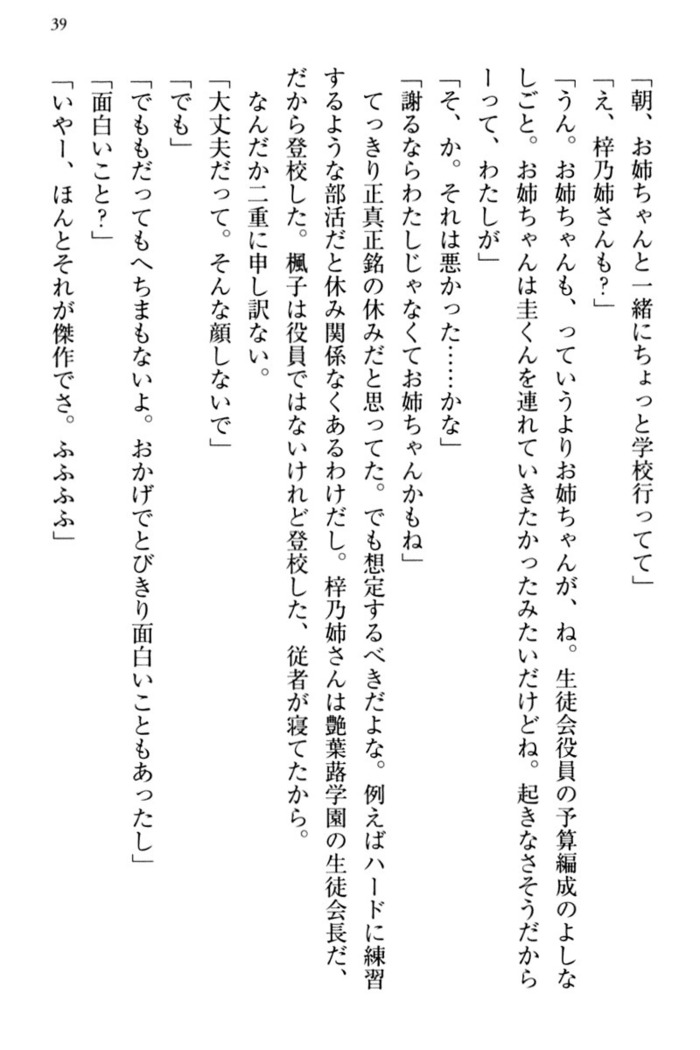 39
「朝、お姉ちゃんと一緒にちょっと学校行ってて」
「え、梓乃姉さんも？」
「うん。お姉ちゃんも、っていうよりお姉ちゃんが、ね。生徒会役員の予算編成のよしな
しごと。お姉ちゃんは圭くんを連れていきたかったみたいだけどね。起きなさそうだから
ーって、わたしが」
「そ、か。それは悪かった……かな」
「謝るならわたしじゃなくてお姉ちゃんかもね」
　てっきり正真正銘の休みだと思ってた。でも想定するべきだよな。例えばハードに練習
するような部活だと休み関係なくあるわけだし。梓乃姉さんは艶葉蕗学園の生徒会長だ、
だから登校した。楓子は役員ではないけれど登校した、従者が寝てたから。
　なんだか二重に申し訳ない。
「大丈夫だって。そんな顔しないで」
「でも」
「でももだってもへちまもないよ。おかげでとびきり面白いこともあったし」
「面白いこと？」
「いやー、ほんとそれが傑作でさ。ふふふふ」